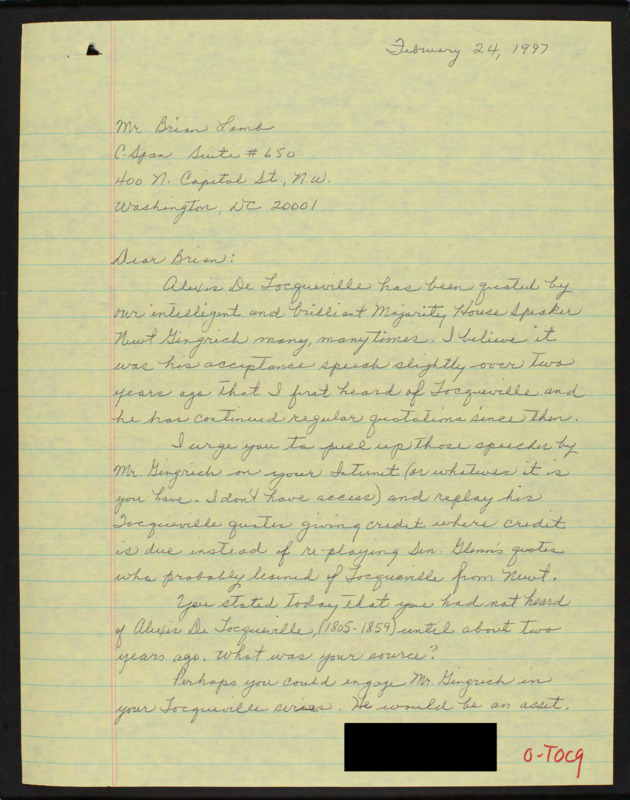 February 24, 1997
Mr Brian Lamb
C-Span Suite # 650
400 N. Capital St., N.W.
Washington, DC 20001
Dear Brian:
Alexis De Tocqueville has been quoted by
our intelligent and brilliant Majority House Speaker
Newt Gingrich many, many times. I believe it
was his acceptance speech slightly over two
years ago that I first heard of Tocqueville and
he has continued regular quotations since then.
I urge you to pull up those speeches by
Mr Gingrich on your Internet (or whatever it is
you have - I don't have access) and replay his
Tocqueville quotes giving credit where credit
is due instead of re-playing Sen. Glenn's quotes
who probably learned of Tocqueville from Newt.
You stated today that you had not heard
of Alexis De Tocqueville, (1805-1859) until about two
years ago. What was your source?
Perhaps you could engage Mr. Gingrich in
your Tocqueville series. He would be an asset.
O-TOCQ